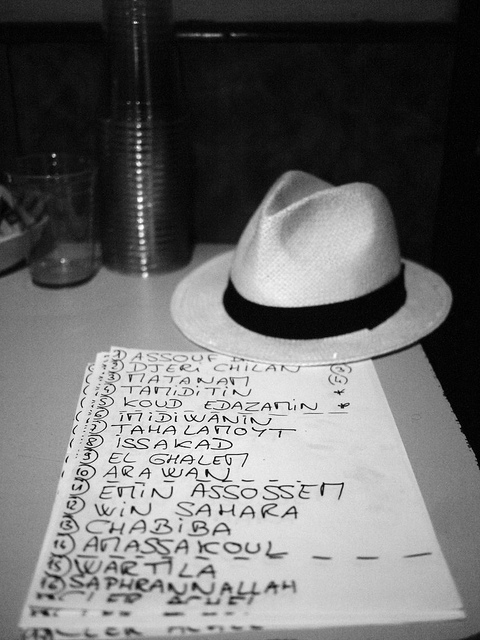 1 ASSOUF
2 DJERI CHILAN
3 MATANAM
4 TAMIDITIN
5 KOUD EDAZAMIN *
6 IMIDIWANIN
7 TAHALAMOYT
8 ISSAKAD
9 EL GHALEM
10 ARAWAN
11 EMIN ASSOSSEM
12 WIN SAHARA
13 CHABIBA
14 AMASSAKOUL
15 WARTILA
16 SAPHRANNALLAH